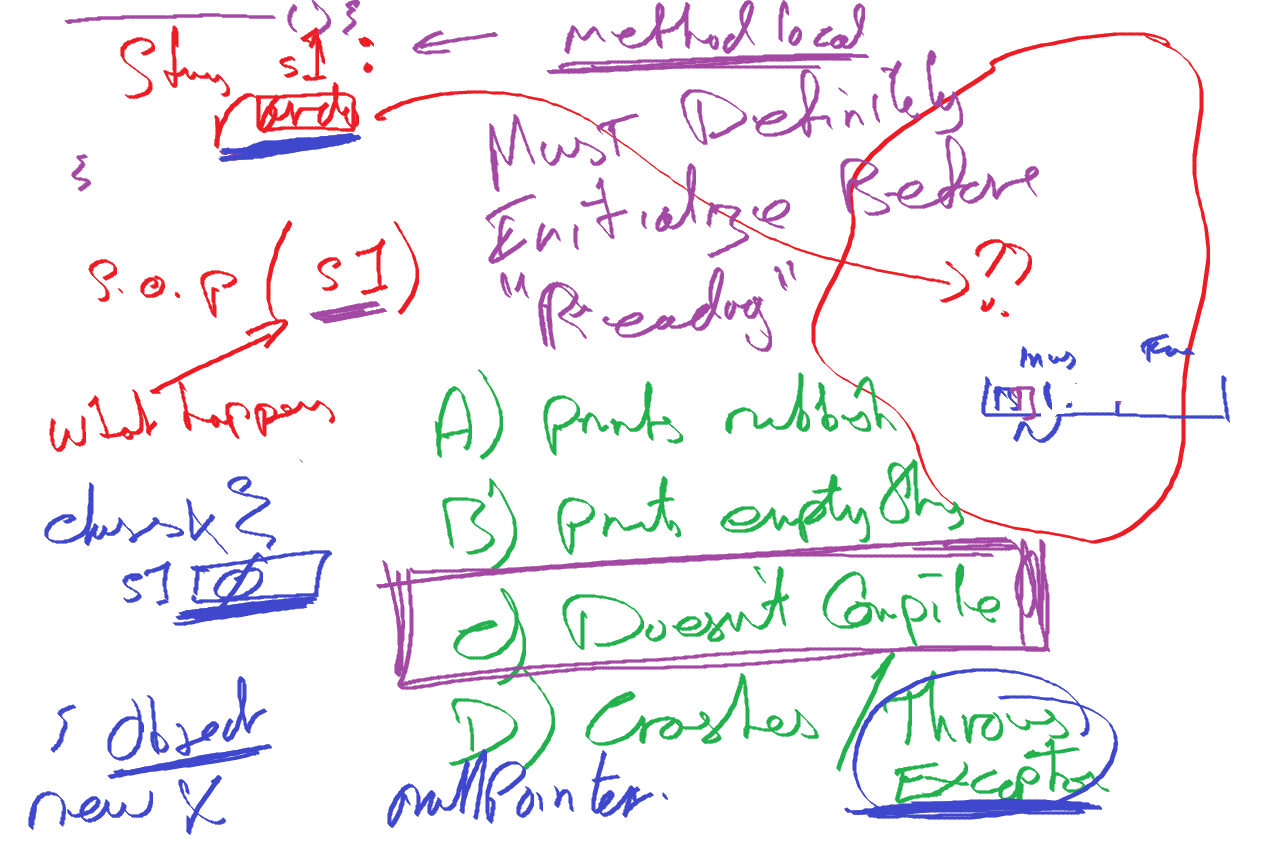 () {
String s1 : ← method local
Must Definitely
}
Initialize Before
"Reading"
S.o.p ( s1 )
??
what happens
A) prints rubbish
B) prints empty Str
class X {
s1 0
C) Doesn't Compile
D) Crashes / Throws Exception
; object
new X
nullPointer.